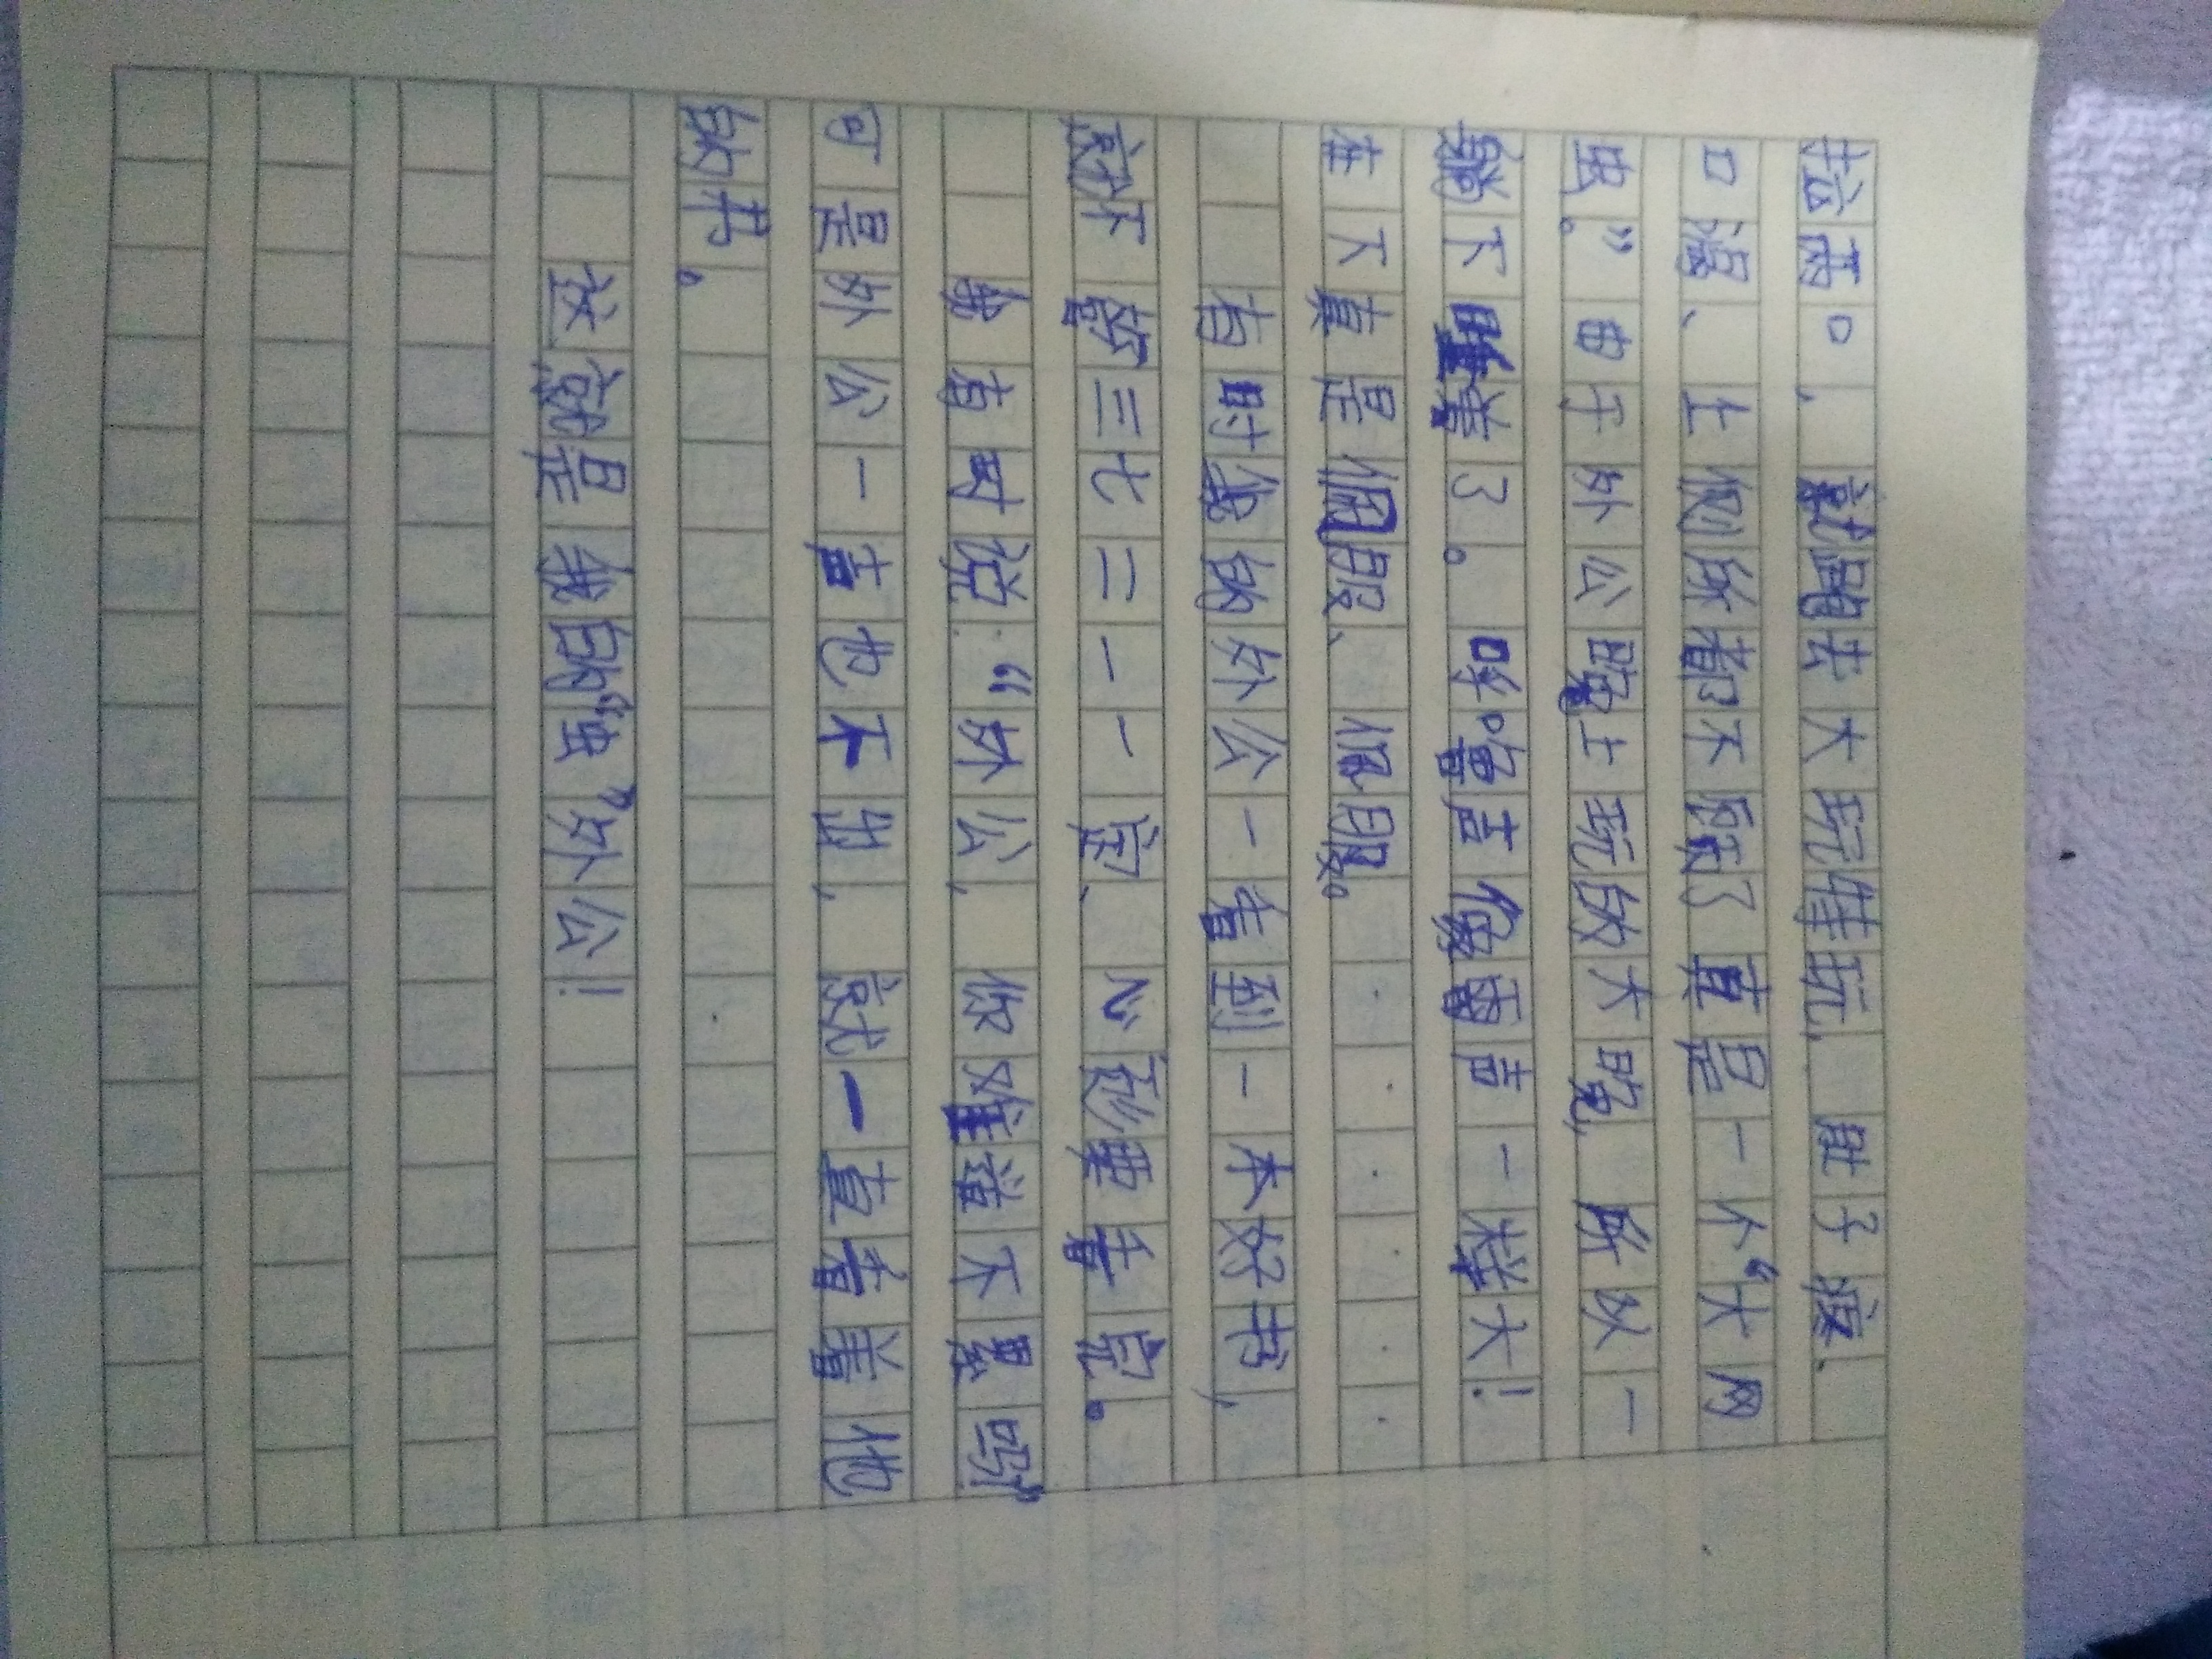 拉面。,就跑去大玩特玩,肚子疼、
口渴、上侧所都不顾了真是一个“大网
虫。”由于外公晚上玩的太晚,所以一
躺下睡着了。呼噜声像雷声一样大!
在下真是佩服、佩服。
有时我的外公一看到一本好书,
就不管三七二一一定、心须要看完。
我有时说:“外公,你难道不累吗”
可是外公一言也不出,就一直看着他
的书。
这就是我的“虫”外公!